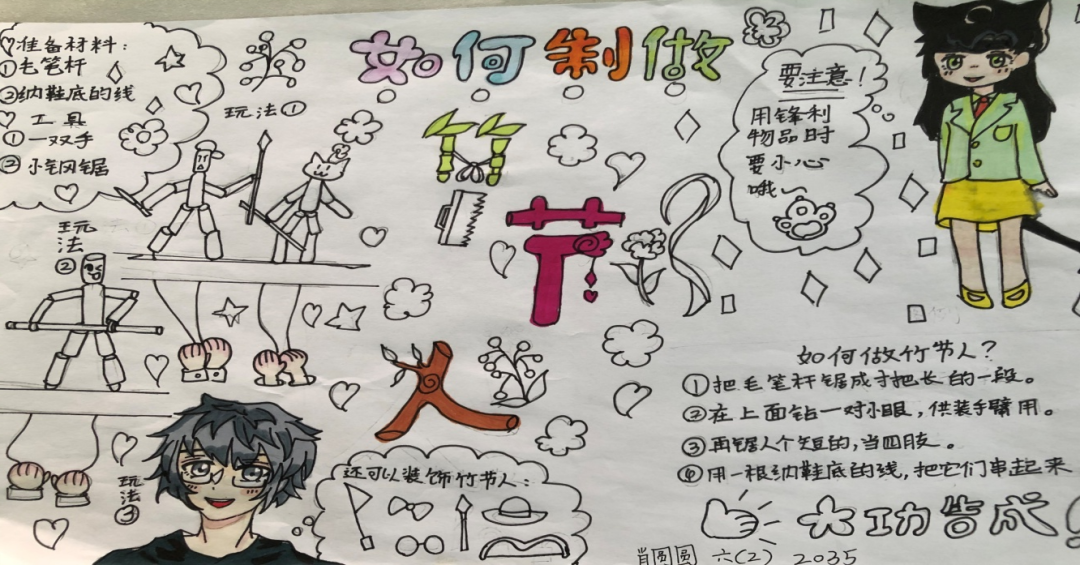 如何制做
竹
节
人
准备材料：
①毛笔杆
②纳鞋底的线
工具
①一双手
②小钢锯
玩法①
玩法
②
玩法
③
要注意！
用锋利
物品时
要小心
哦~
如何做竹节人？
①把毛笔杆锯成寸把长的一段。
②在上面钻一对小眼，供装手臂用。
③再锯八个短的，当四肢。
④用一根纳鞋底的线，把它们串起来
大功告成！
还可以装饰竹节人：
肖圆圆 六(2) 2035